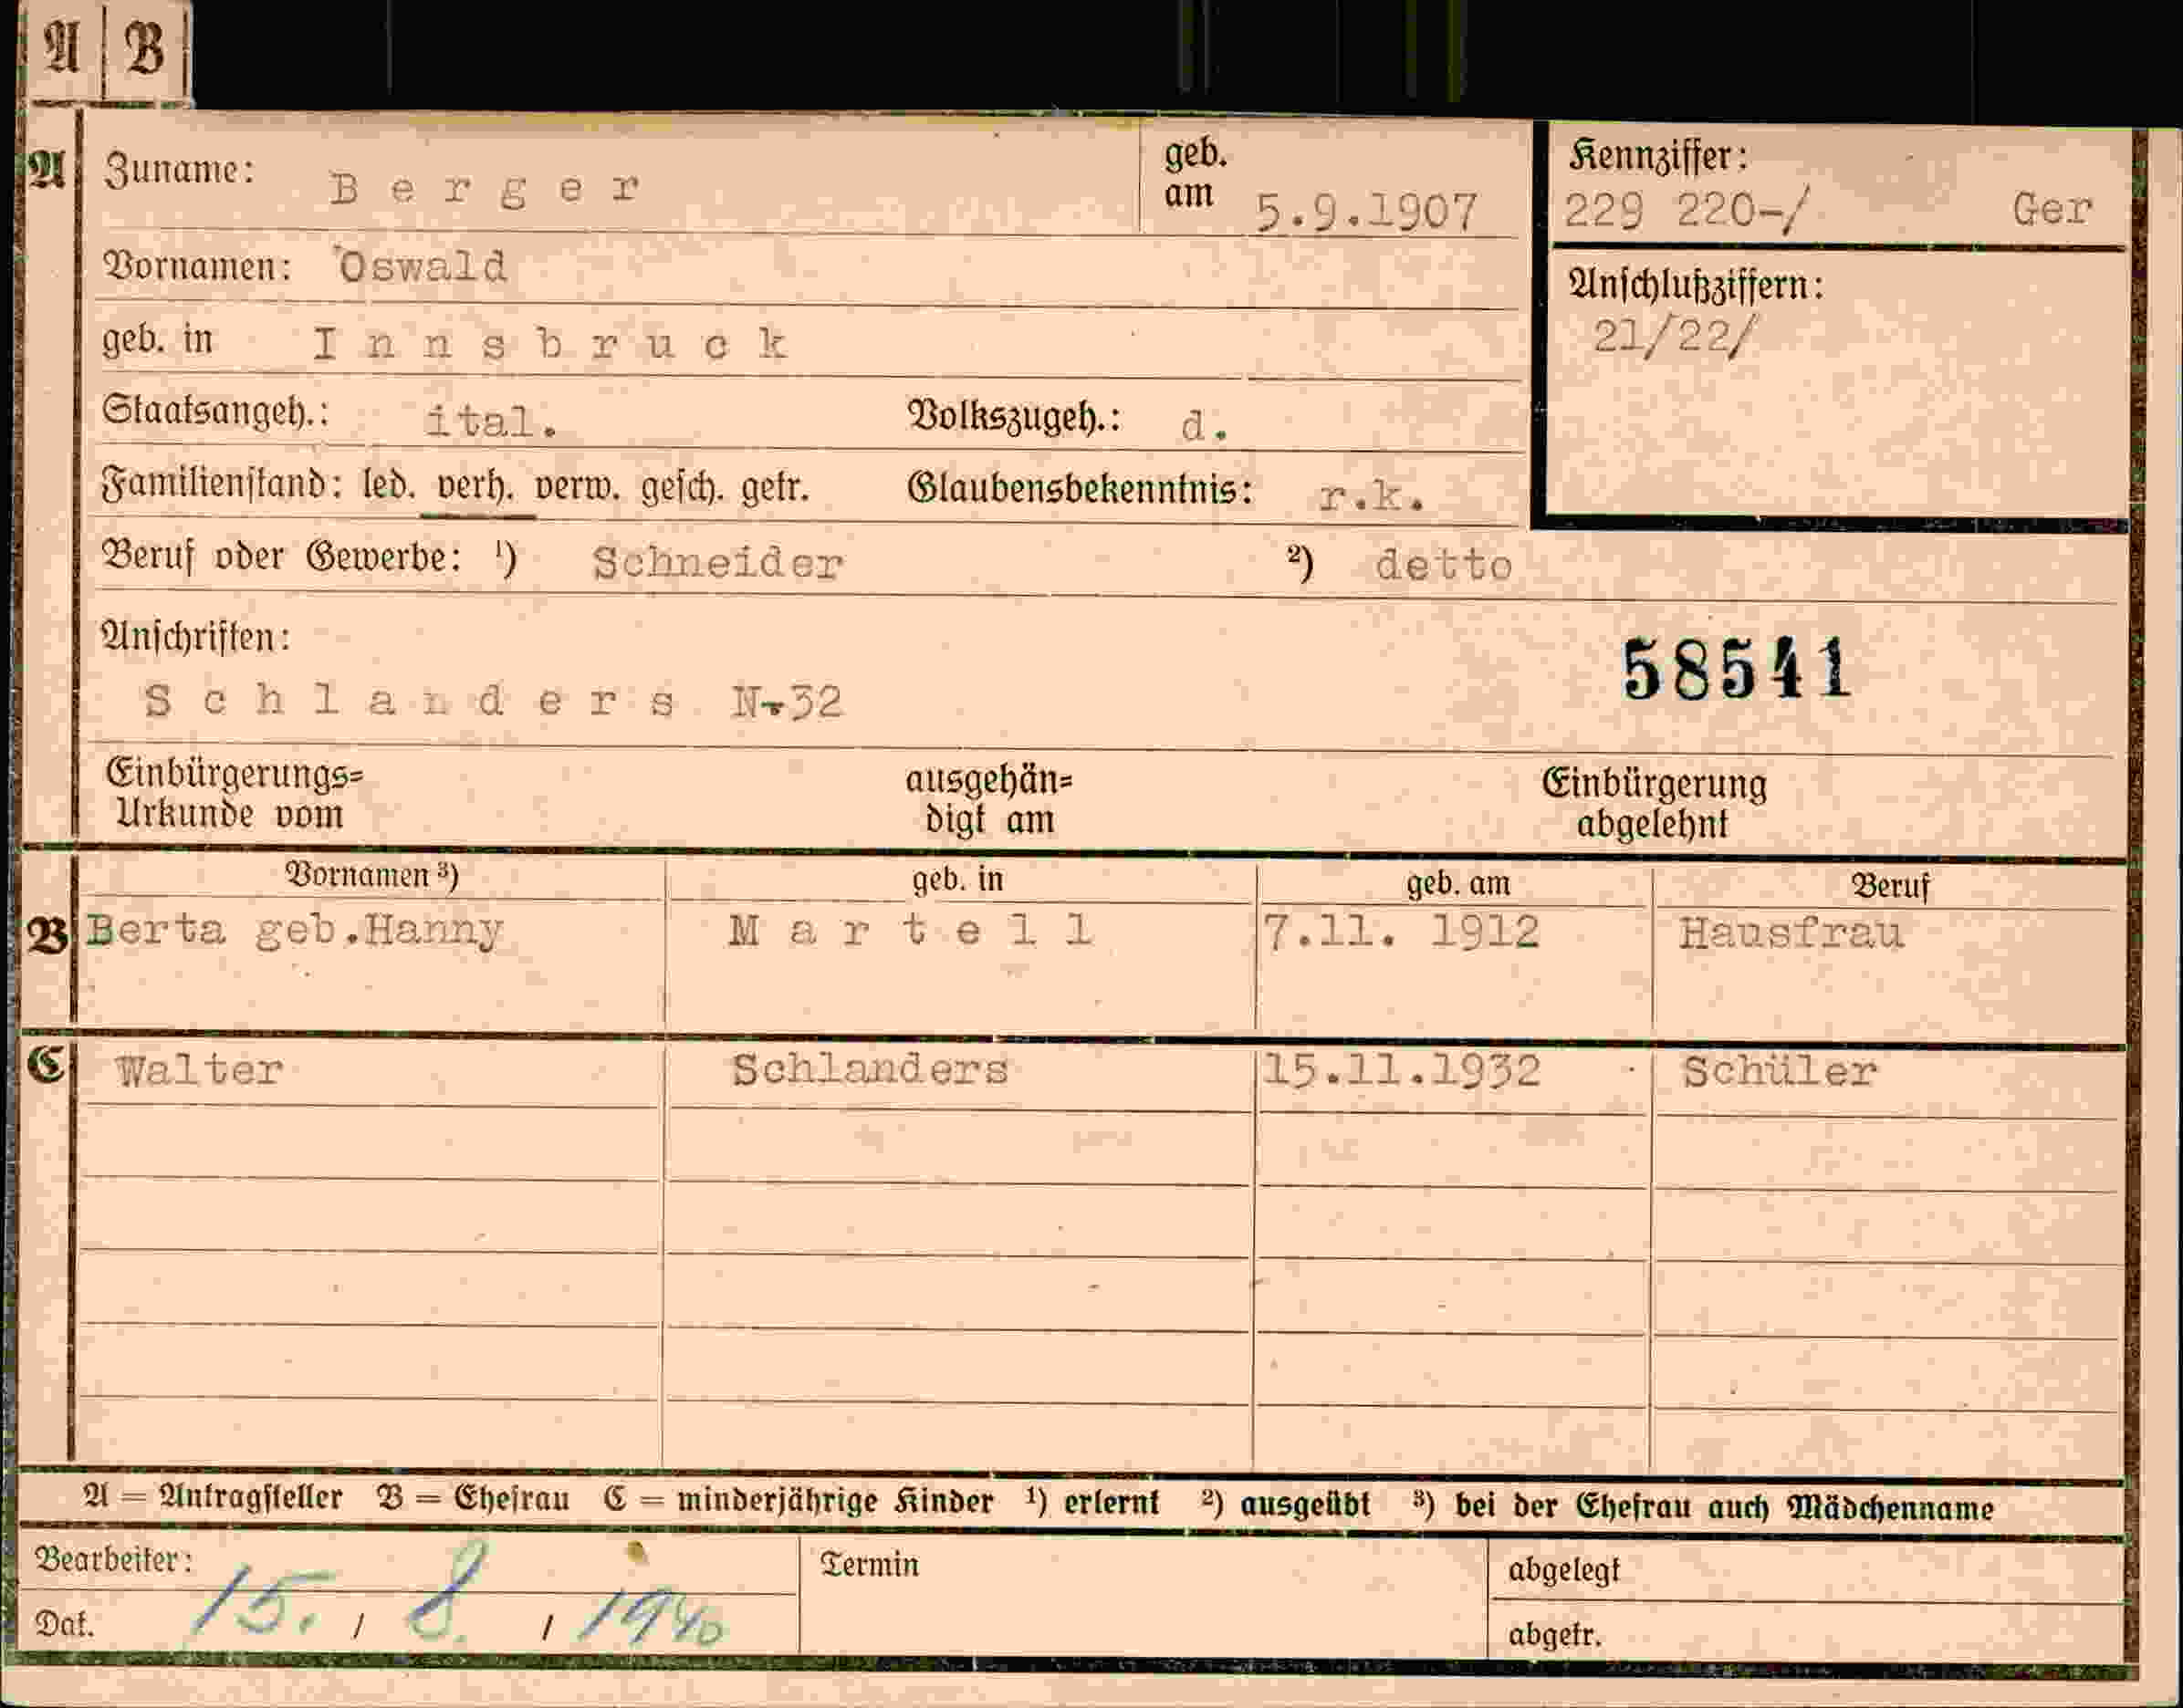 A B
A Zuname: Berger geb. am 5.9.1907 Kennziffer: 229 220-/ Ger
Vornamen: Oswald Anschlußziffern:
21/22/
geb. in Innsbruck
Staatsangeh.: ital. Volkszugeh.: d.
Familienstand: led. verh. verw. gesch. getr. Glaubensbekenntnis: r.k.
Beruf oder Gewerbe: ¹) Schneider ²) detto
Anschriften:
58541
Schlanders N.32
Einbürgerungs= ausgehän= Einbürgerung
Urkunde vom digt am abgelehnt
Vornamen ³) geb. in geb. am Beruf
B Berta geb.Hanny Martell 7.11. 1912 Hausfrau
C Walter Schlanders 15.11.1932 Schüler
A = Antragsteller B = Ehefrau C = minderjährige Kinder ¹) erlernt ²) ausgeübt ³) bei der Ehefrau auch Mädchenname
Bearbeiter: Termin abgelegt
Dat. 15. / 8. / 1940 abgetr.